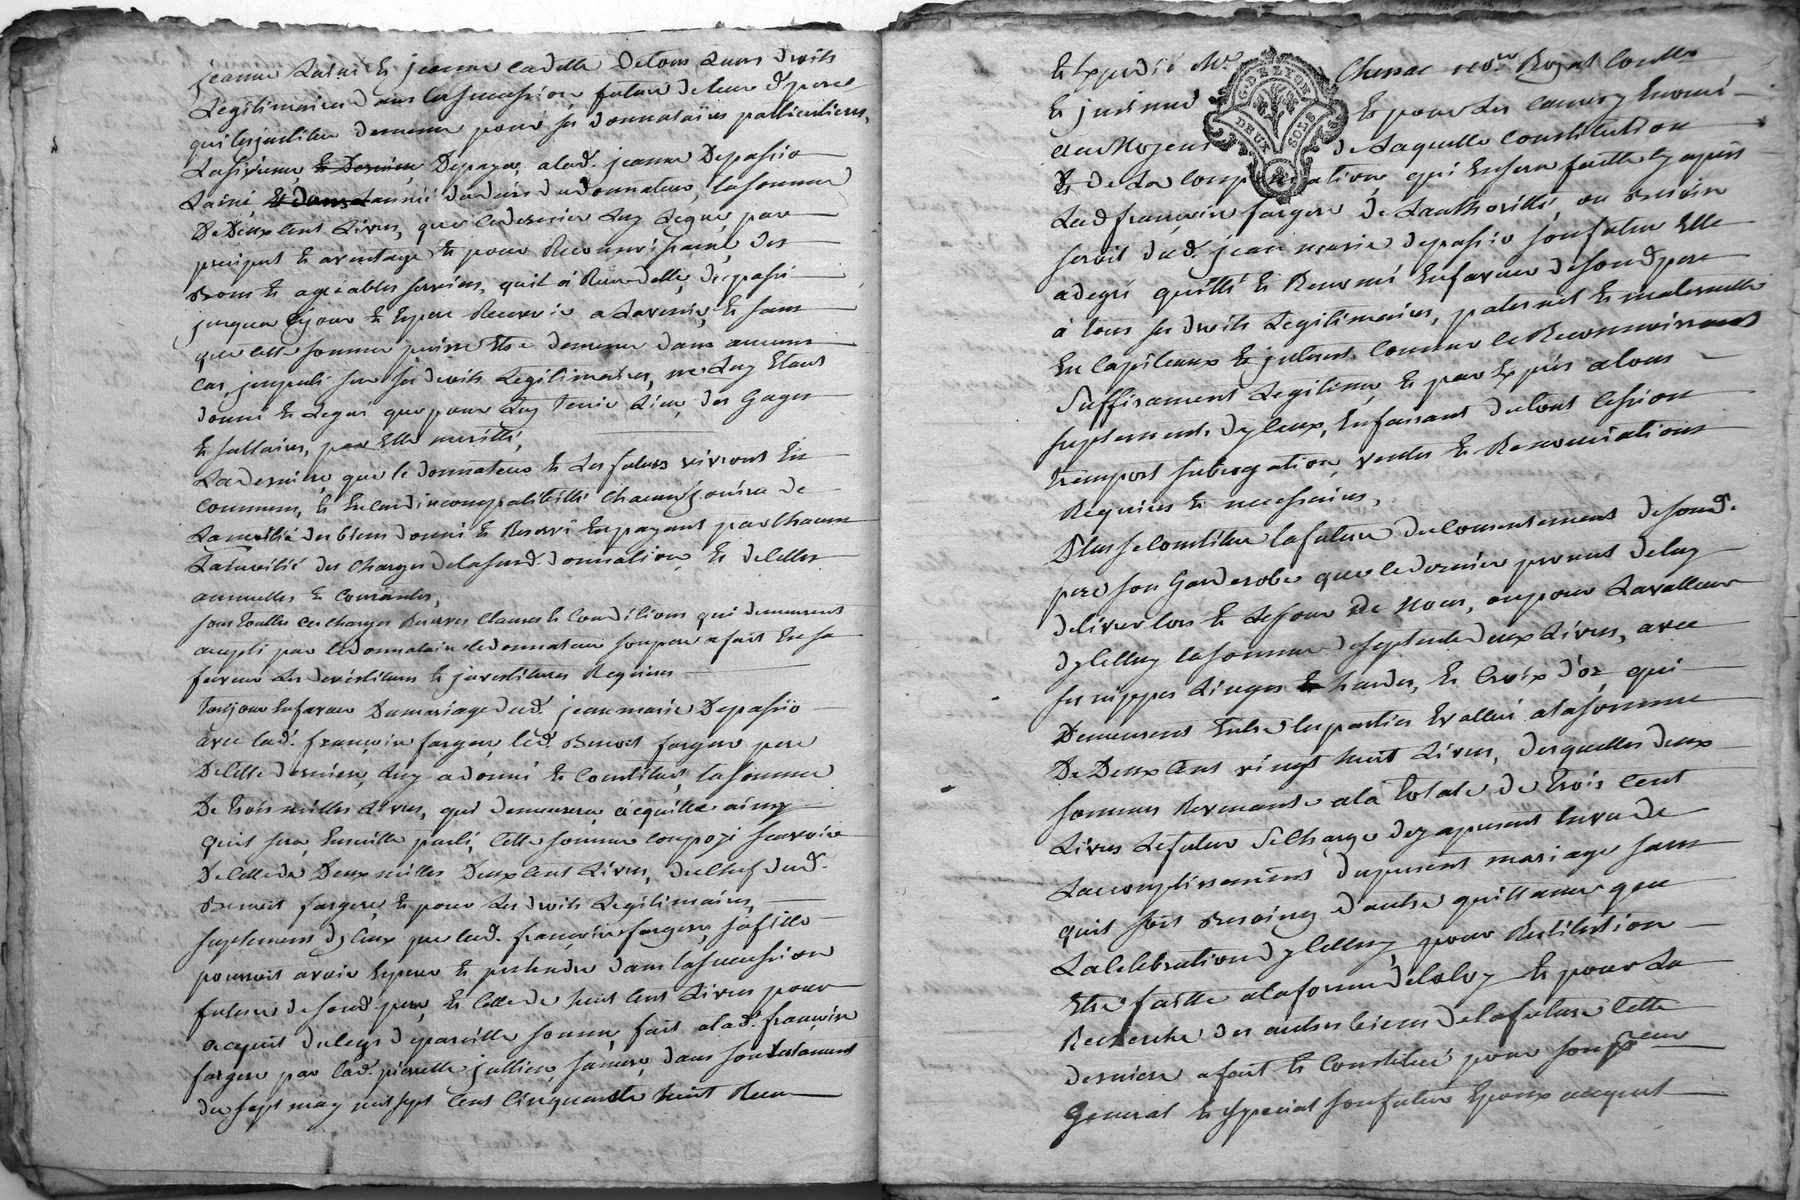 jeanne Lainé Et jeanne cadette De tous Leurs droits
Legitimaires dans La succession future de leur d. pere
qui les institue demeure pour ses donnataires particulieres,
La sixieme, Depayer, alad. jeanne Depassio
Lainé, L'année du deces du donnateur, la somme
De Deux cent Livres, que ce dernier Luy Legue, par
preciput Et avantage Et pour Reconnoissance, des
Bons Et agreables services, quil a Reçu delle, depassé
jusqua ce jour Et Espere Recevoir a Lavenir, Et sans
que cette somme puisse Etre demeure dans aucuns
Cas, imputé sur ses droits Legitimaires, ne Luy Etant
donné Et Legué que pour Luy Tenir Lieu, des Gages
Et sallaires, par Elle merittés,
La derniere que le donnateur Et Les futurs vivront En
Commun, Et En cas dincompatibillité chacun jouira de
La moitié des biens donné Et Reservé En payant par chacun
La moitié des charges de la susd. donnation, Et de celles
annuelles Et courantes,
sous touttes ces charges Reserves Clauses Et Conditions qui demeurent
accepté par le donnataire le donnateur son pere a fait En sa
faveur Les devestitures Et investitures Requises
Toujours En faveur Du mariage dud. jean marie Depassio
avec lad. françoise fargere led. Benoit fargere pere
De cette derniere, Luy a donné Et Constitué, la somme
De trois milles Livres, qui demeurera acquittée ainsy
quil sera, Ensuitte parlé, Cette somme composé scavoir
De celle de Deux milles Deux Cent Livres, du chef dud.
Benoit fargere, Et pour Les droits Legitimaires,
suplement diceux que lad. françoise fargere, sa fille
pourroit avoir Esperer Et pretendre dans la succession
future de sond. pere, Et Celle de huit Cent Livres pour
acquit du legs de pareille somme, fait alad. françoise
fargere par lad. pierrette jullien, sa mere, dans son testament
du sept may mil sept Cent Cinquante huit Recu
Et Expedié Me. Chessac no.re Royal Controllé
Et insinué Et pour Les causes y Enoncé
au Moyen de Laquelle constitution
Et de La compensation, qui En sera faitte cy apres
Lad. françoise fargere, de Lauthoritté, ou Besoin
seroit dud. jean marie depassio son futur Elle
a degré quitté Et Renoncé En faveur de sond. pere
à tous ses droits Legitimaires, paternels Et maternelle
En Capiteaux Et interet, Comme le Reconnoissant
suffisament Legitimé, Et par Exprés atous
suplements diceux, En faisant du tout cession
transport subrogation, ventes Et Renonciations
Requises Et necessaires,
Plus se constitue la future du consentement de sond.
pere son Garderobe que ce dernier promet de luy
delivrer lors Et Le jour De Noces, ou pour La valleur
dycelluy la somme de septante deux Livres, avec
ses nippes Linges Et hardes, Et Croix d'or, qui
Demeurent Entre les parties Evallué ala somme
De Deux Cent vingt huit Livres, desquelles deux
sommes Revenante ala totale de trois Cent
Livres Le futur se Charge dez apresent En vu de
Laccomplissement du present mariage sans
quil soit Besoing d'autre quittance que
La celebration dycelluy, pour Restitution
Etre faitte ala forme de la loy Et pour La
Recherche des autres biens de la future Cette
derniere a fait Et Constitué pour son p.reur
General Et special son futur Epoux acquit
G. DE LYON
DEUX SOLS